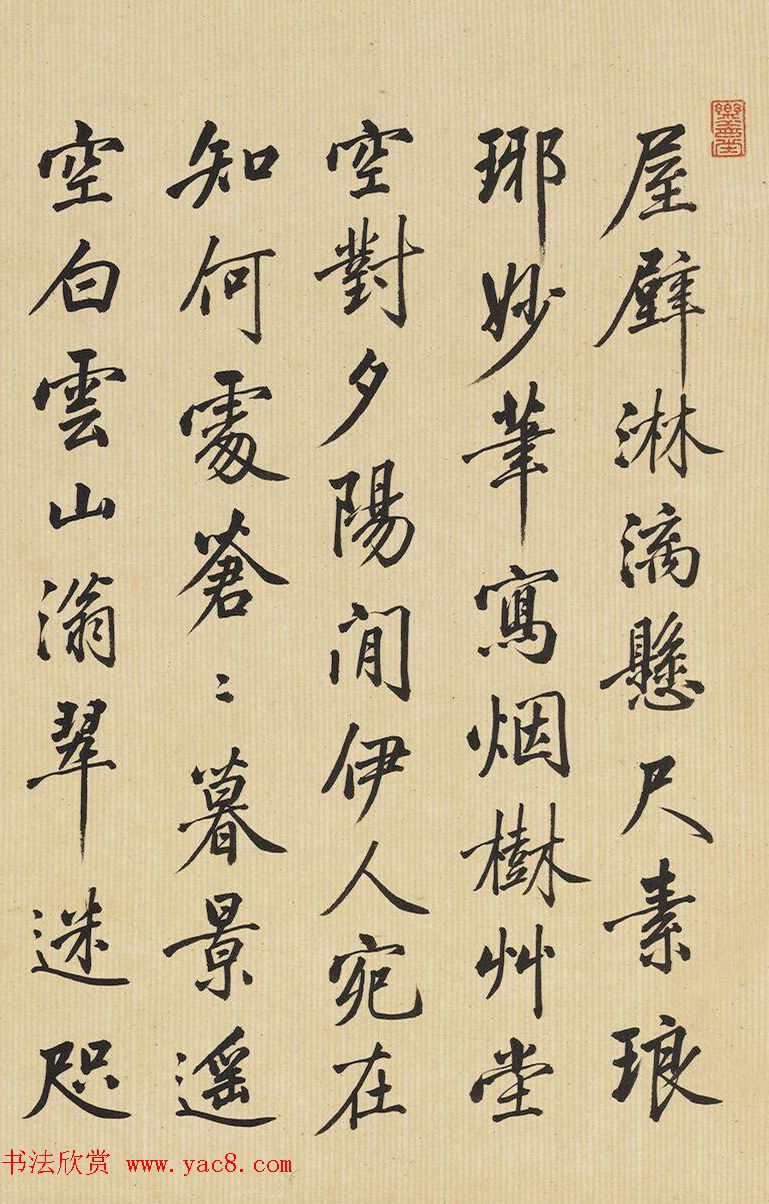 屋壁淋漓懸尺素琅
琊妙筆寫烟樹艸堂
空對夕陽閒伊人宛在
知何處蒼〻暮景遥
空白雲山滃翠迷咫
樂善堂
书法欣赏 www.yac8.com